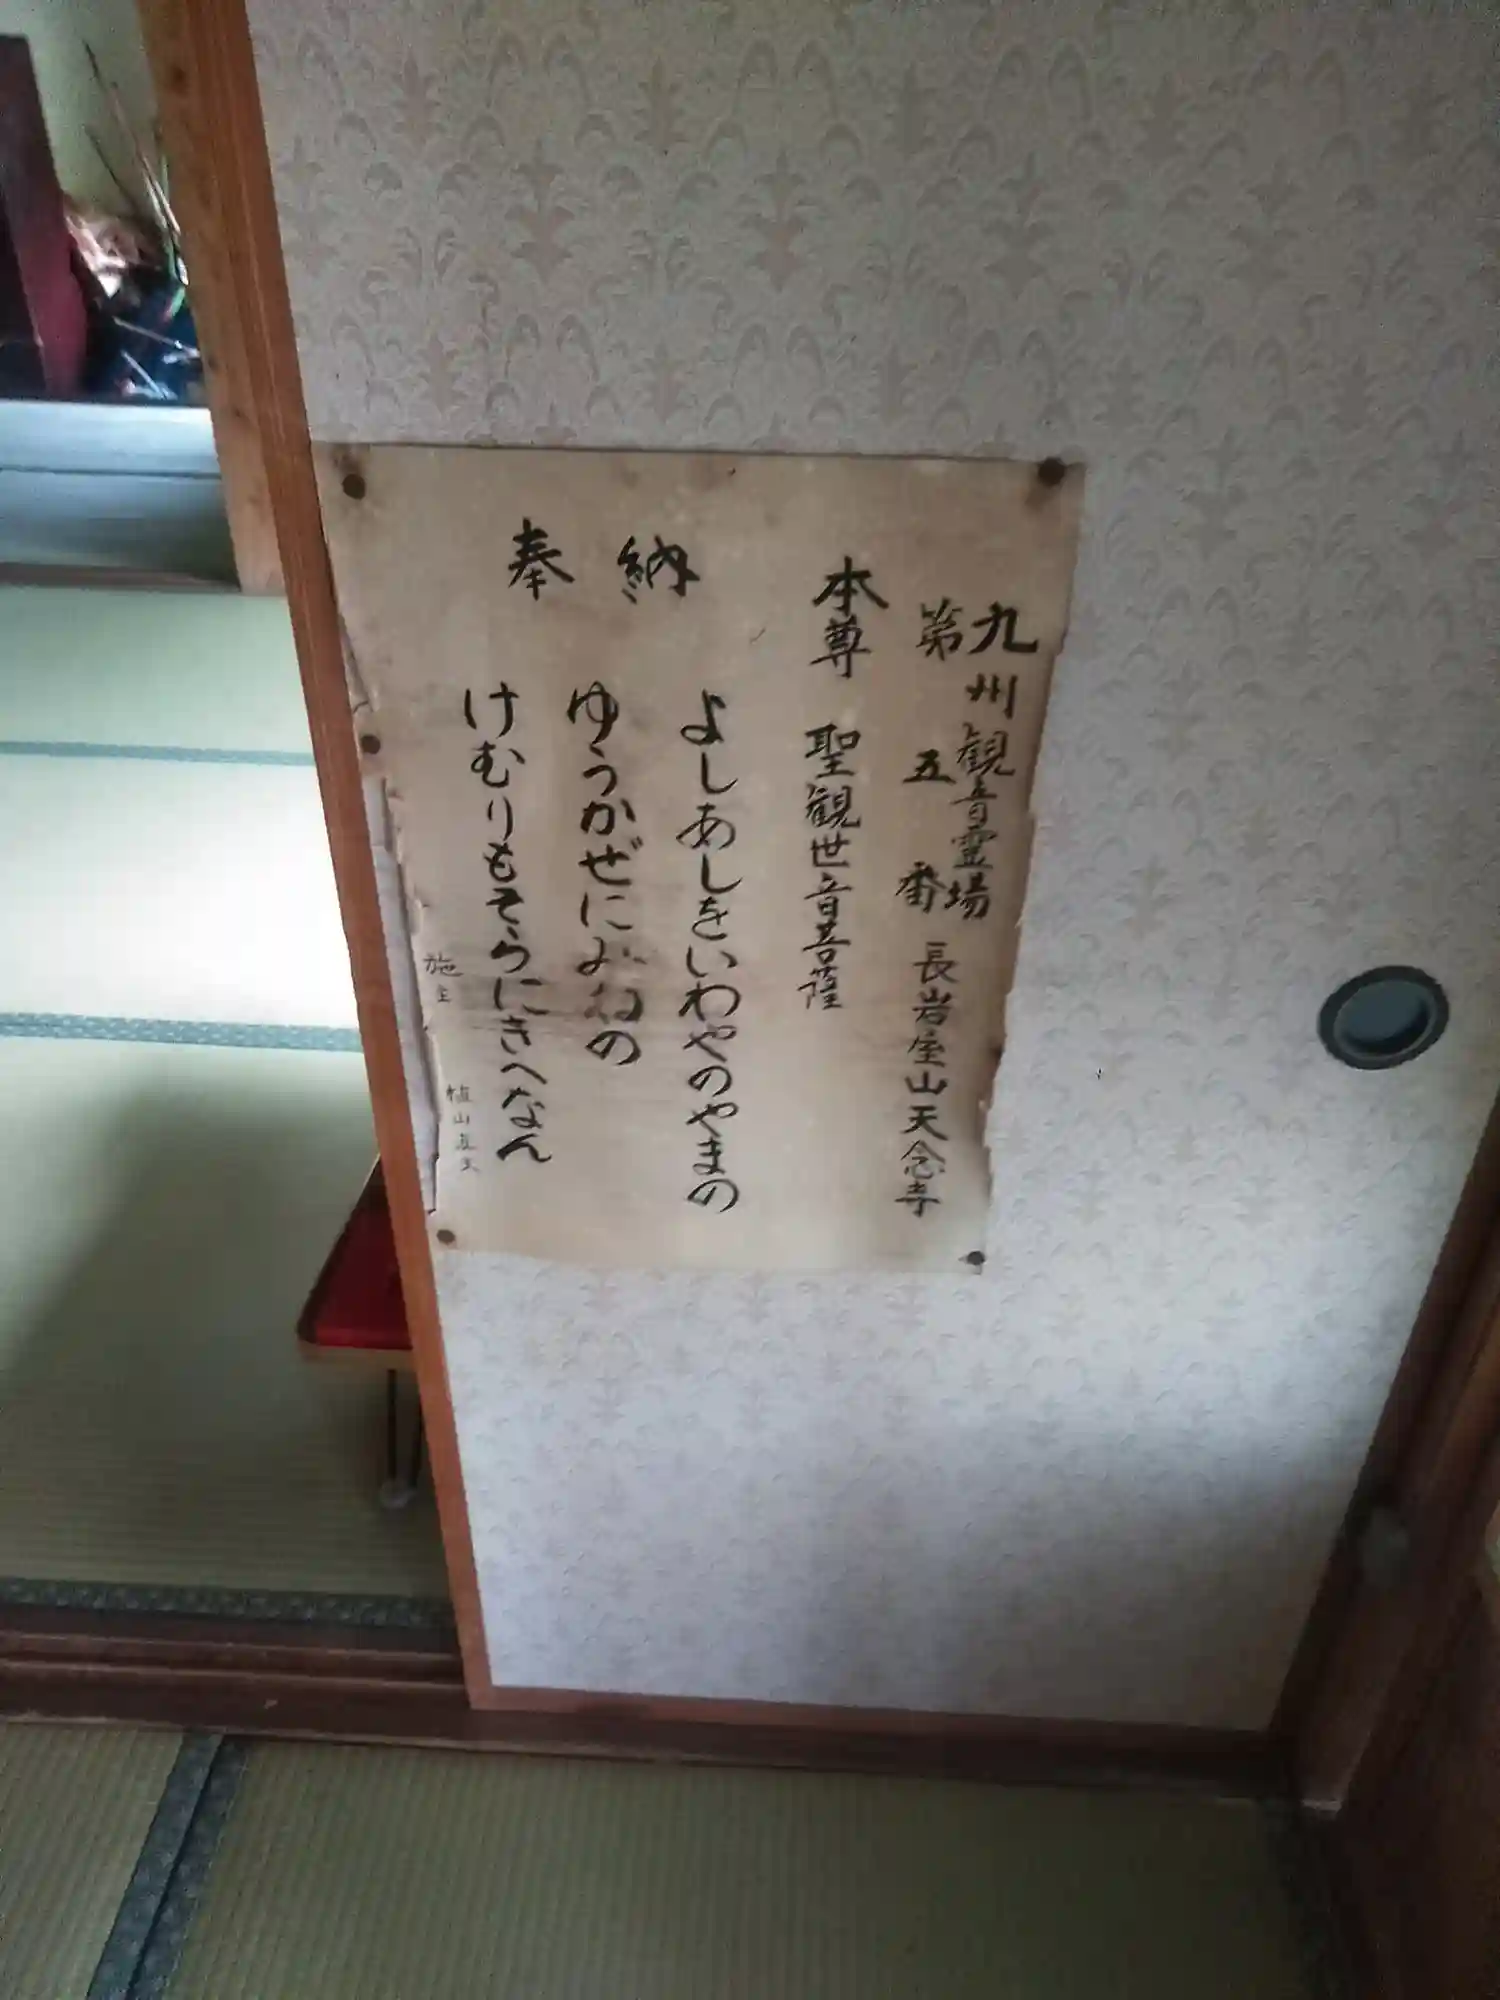 九州観音霊場
第五番 長岩屋山天念寺
本尊 聖観世音菩薩
奉納
よしあしをいわやのやまの
ゆうかぜに みねの
けむりもそらにきへなん
施主 植山直文